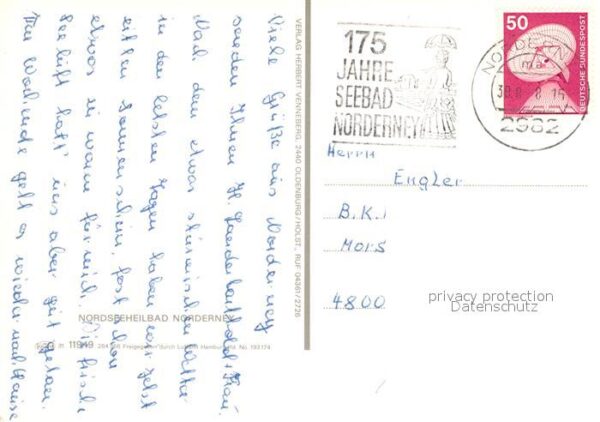 Viele Grüße aus Norderney
senden Ihnen H. + Frau.
Nach dem etwas stürmischen Wetter
in den letzten Tagen haben wir jetzt
Sonnenschein, fast schon
etwas zu warm für mich. Die frische
Seeluft hat uns aber gut getan.
Am Wochenende geht es wieder nach Hause
VERLAG HERBERT VENNEBERG, 2440 OLDENBURG/HOLST., RUF 04361/2726
NORDSEEHEILBAD NORDERNEY
11949 Freigegeben durch Luftamt Hamburg Nr. 193174
175
JAHRE
SEEBAD
NORDERNEY
NORDERNEY
2982
50
DEUTSCHE BUNDESPOST
Herrn
Engler
B.K.
Mors
4800
privacy protection
Datenschutz